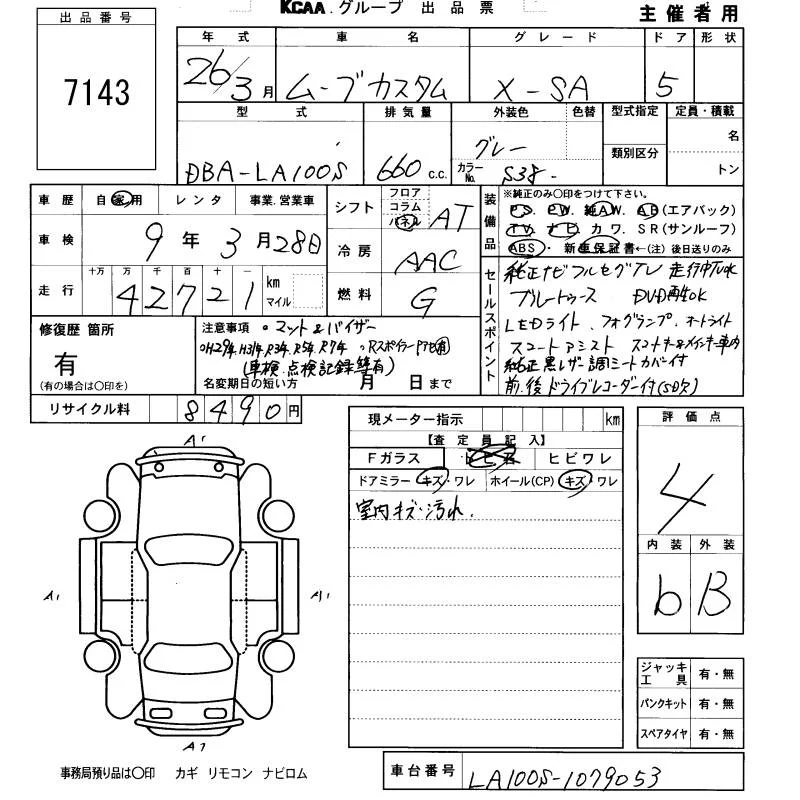 KCAA.グループ 出品票
主催者用
出品番号
7143
年式 車名 グレード ドア 形状
26/3月 ムーブカスタム X-SA 5
型式 排気量 外装色 色替 型式指定 定員・積載
DBA-LA100S 660 c.c. グレー カラーNo. S38 類別区分 名 トン
車歴 自家用 レンタ 事業.営業車
車検 9年3月28日
走行 十万 万 千 百 十 一 km マイル
42721
シフト フロア コラム パネル AT
冷房 AAC
燃料 G
装備品 ※純正のみ○印をつけて下さい。
P.S. P.W. 純A.W. A.B(エアバック)
T.V. ナビ カワ. S R(サンルーフ)
ABS・ 新車保証書←(注) 後日送りのみ
セールスポイント
純正ナビフルセグTV 走行中TVOK
ブルートゥース DVD再生OK
LEDライト、フォグランプ、オートライト
スマートアシスト
純正黒レザー調シートカバー付
前.後ドライブレコーダー付(SD欠)
修復歴 箇所
有
(有の場合は○印を)
注意事項 ○マット&バイザー
○H29年.H31年.R3年.R5年.R7年 ○Rスポイラー
(車検.点検記録簿有)
名変期日の短い方 月 日まで
リサイクル料 8490円
現メーター指示 km
【査定員記入】
Fガラス トビ石 ヒビワレ
ドアミラー キズ・ワレ ホイール(CP) キズ・ワレ
室内キズ・汚れ.
評価点
4
内装 外装
b B
A1
A1
A1
A1
ジャッキ工具 有・無
パンクキット 有・無
スペアタイヤ 有・無
事務局預り品は○印 カギ リモコン ナビロム
車台番号 LA100S-1079053